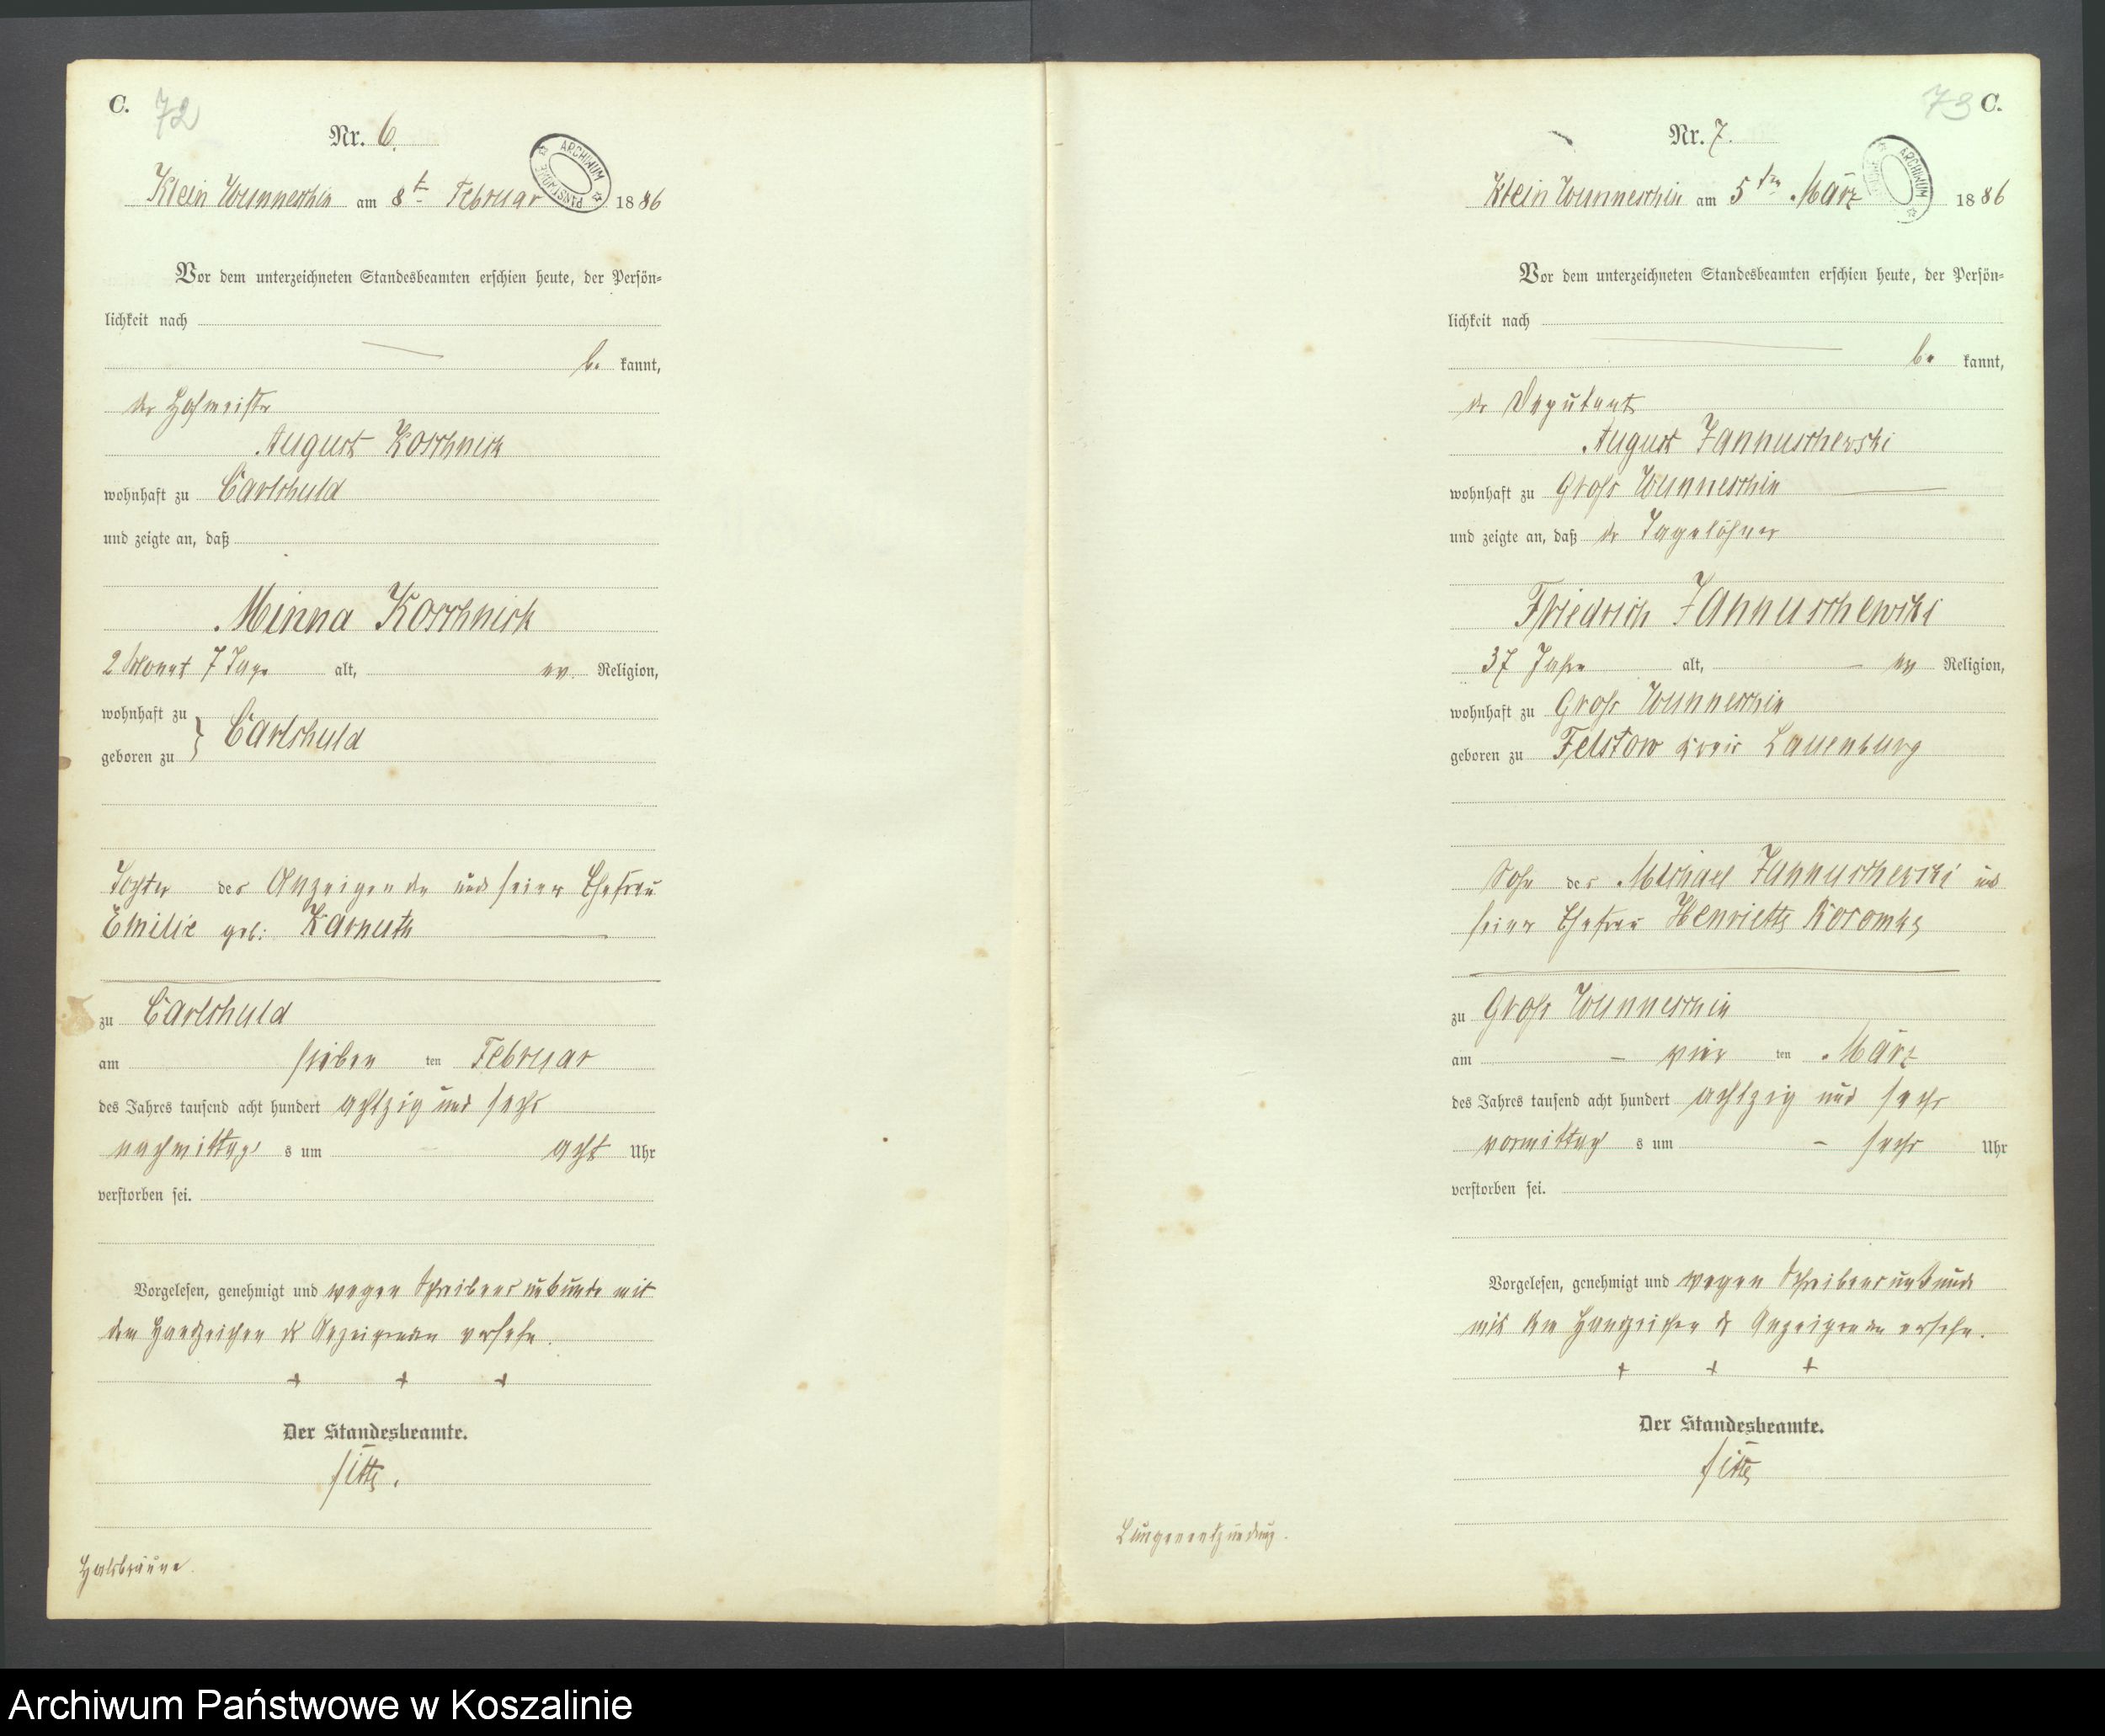 C. 72
Nr. 6.
ARCHIWUM PAŃSTWOWE
Klein Wunneschin am 8t Februar 1886
Vor dem unterzeichneten Standesbeamten erschien heute, der Persön=
lichkeit nach
be kannt,
der Hofmeister
August Koschnick
wohnhaft zu Carlshuld
und zeigte an, daß
Minna Koschnick
2 Monat 7 Tage alt, ev. Religion,
wohnhaft zu
geboren zu } Carlshuld
Tochter des Anzeigenden und seiner Ehefrau
Emilie geb: Karnuth
zu Carlshuld
am sieben ten Februar
des Jahres tausend acht hundert achtzig und sechs
nachmittag s um acht Uhr
verstorben sei.
Vorgelesen, genehmigt und wegen Schreibens unkunde mit
dem Handzeichen des Anzeigenden versehen.
+ + +
Der Standesbeamte.
Halsbräune.
73 C.
Nr. 7.
ARCHIWUM
Klein Wunneschin am 5ten März 1886
Vor dem unterzeichneten Standesbeamten erschien heute, der Persön=
lichkeit nach
be kannt,
der Deputant
August Jannuschewski
wohnhaft zu Groß Wunneschin
und zeigte an, daß der Tagelöhner
Friedrich Jannuschewski
37 Jahre alt, ev Religion,
wohnhaft zu Groß Wunneschin
geboren zu Felstow Kreis Lauenburg
Sohn des Michael Jannuschewski und
seiner Ehefrau Henriette
zu Groß Wunneschin
am vier ten März
des Jahres tausend acht hundert achtzig und sechs
vormittag s um sechs Uhr
verstorben sei.
Vorgelesen, genehmigt und wegen Schreibensunkunde
mit dem Handzeichen des Anzeigenden versehn.
+ + +
Der Standesbeamte.
Lungenentzündung.
Archiwum Państwowe w Koszalinie